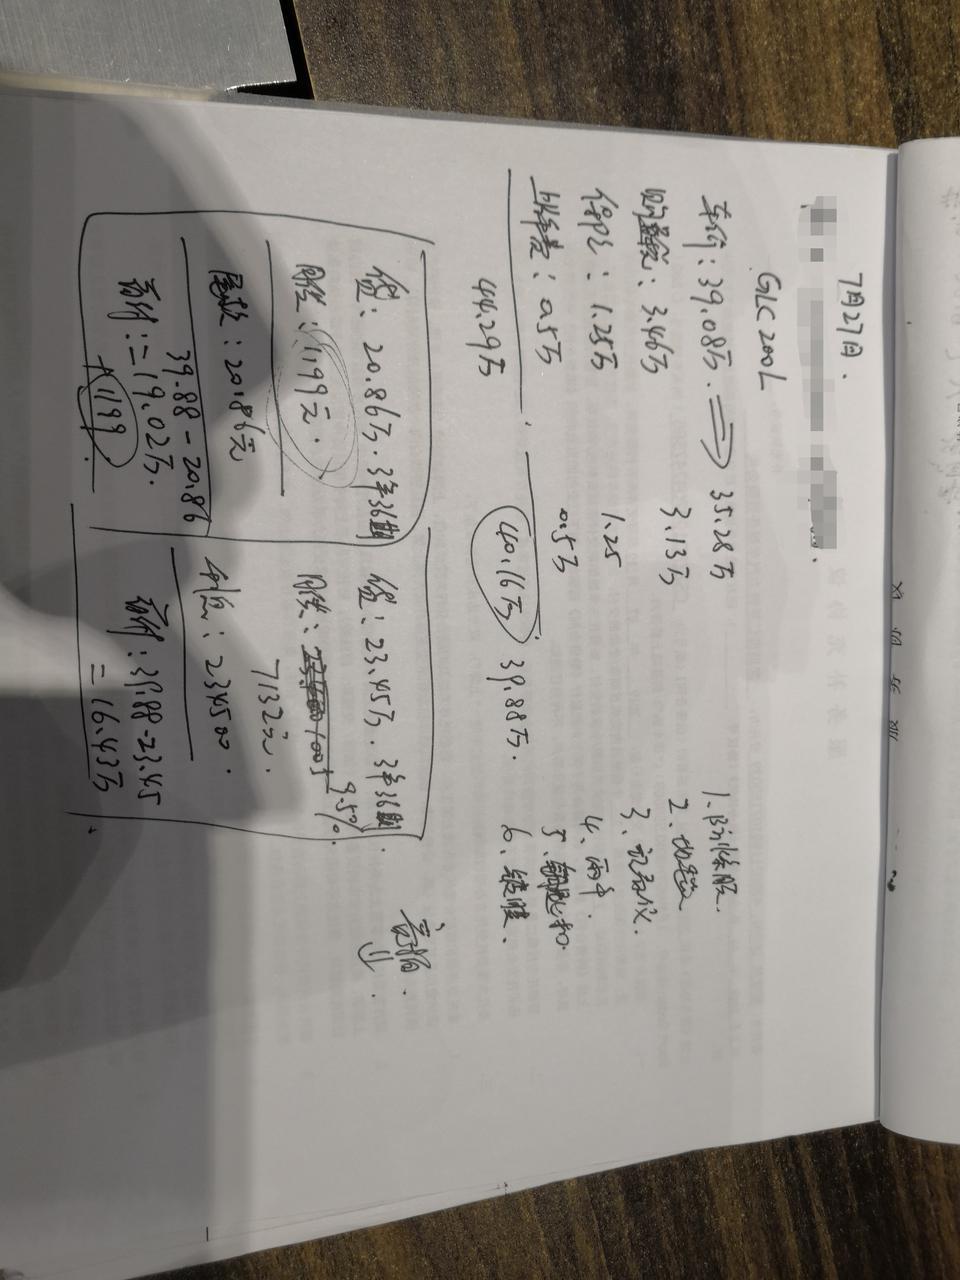 7月27日.
GLC 200L
车价: 39.08万. ⇒ 35.28万
购置税: 3.46万 3.13万
保险: 1.25万 1.25
上牌费: 0.5万 0.5万
44.29万 40.16万 39.88万.
1.
2.
3. 记录仪.
4. 雨伞.
5. 钥匙扣.
6. 镀膜.
贷: 20.86万. 3年36期
月供: 1199元.
尾款: 20.86元
39.88-20.86
首付: =19.02万.
+1199.
贷: 23.45万. 3年36期.
月供: 9.5%.
7132元.
利息: 234500.
首付: 39.88-23.45
=16.43万